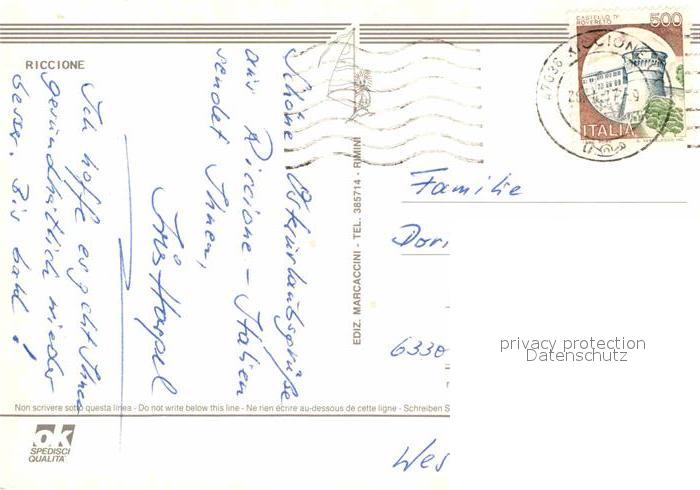 RICCIONE
CASTELLO DI
ROVERETO
500
ITALIA
RICCIONE
Schöne
aus Riccione - Italien
sendet Ihnen,
Ich hoffe es geht Ihnen
gesundheitlich wieder
besser. Bis bald!
EDIZ. MARCACCINI - TEL. 385714 - RIMINI
Familie
Dori
6330
privacy protection
Datenschutz
Non scrivere sotto questa linea - Do not write below this line - Ne rien écrire au-dessous de cette ligne - Schreiben S
ok
SPEDISCI
QUALITA'
Wes